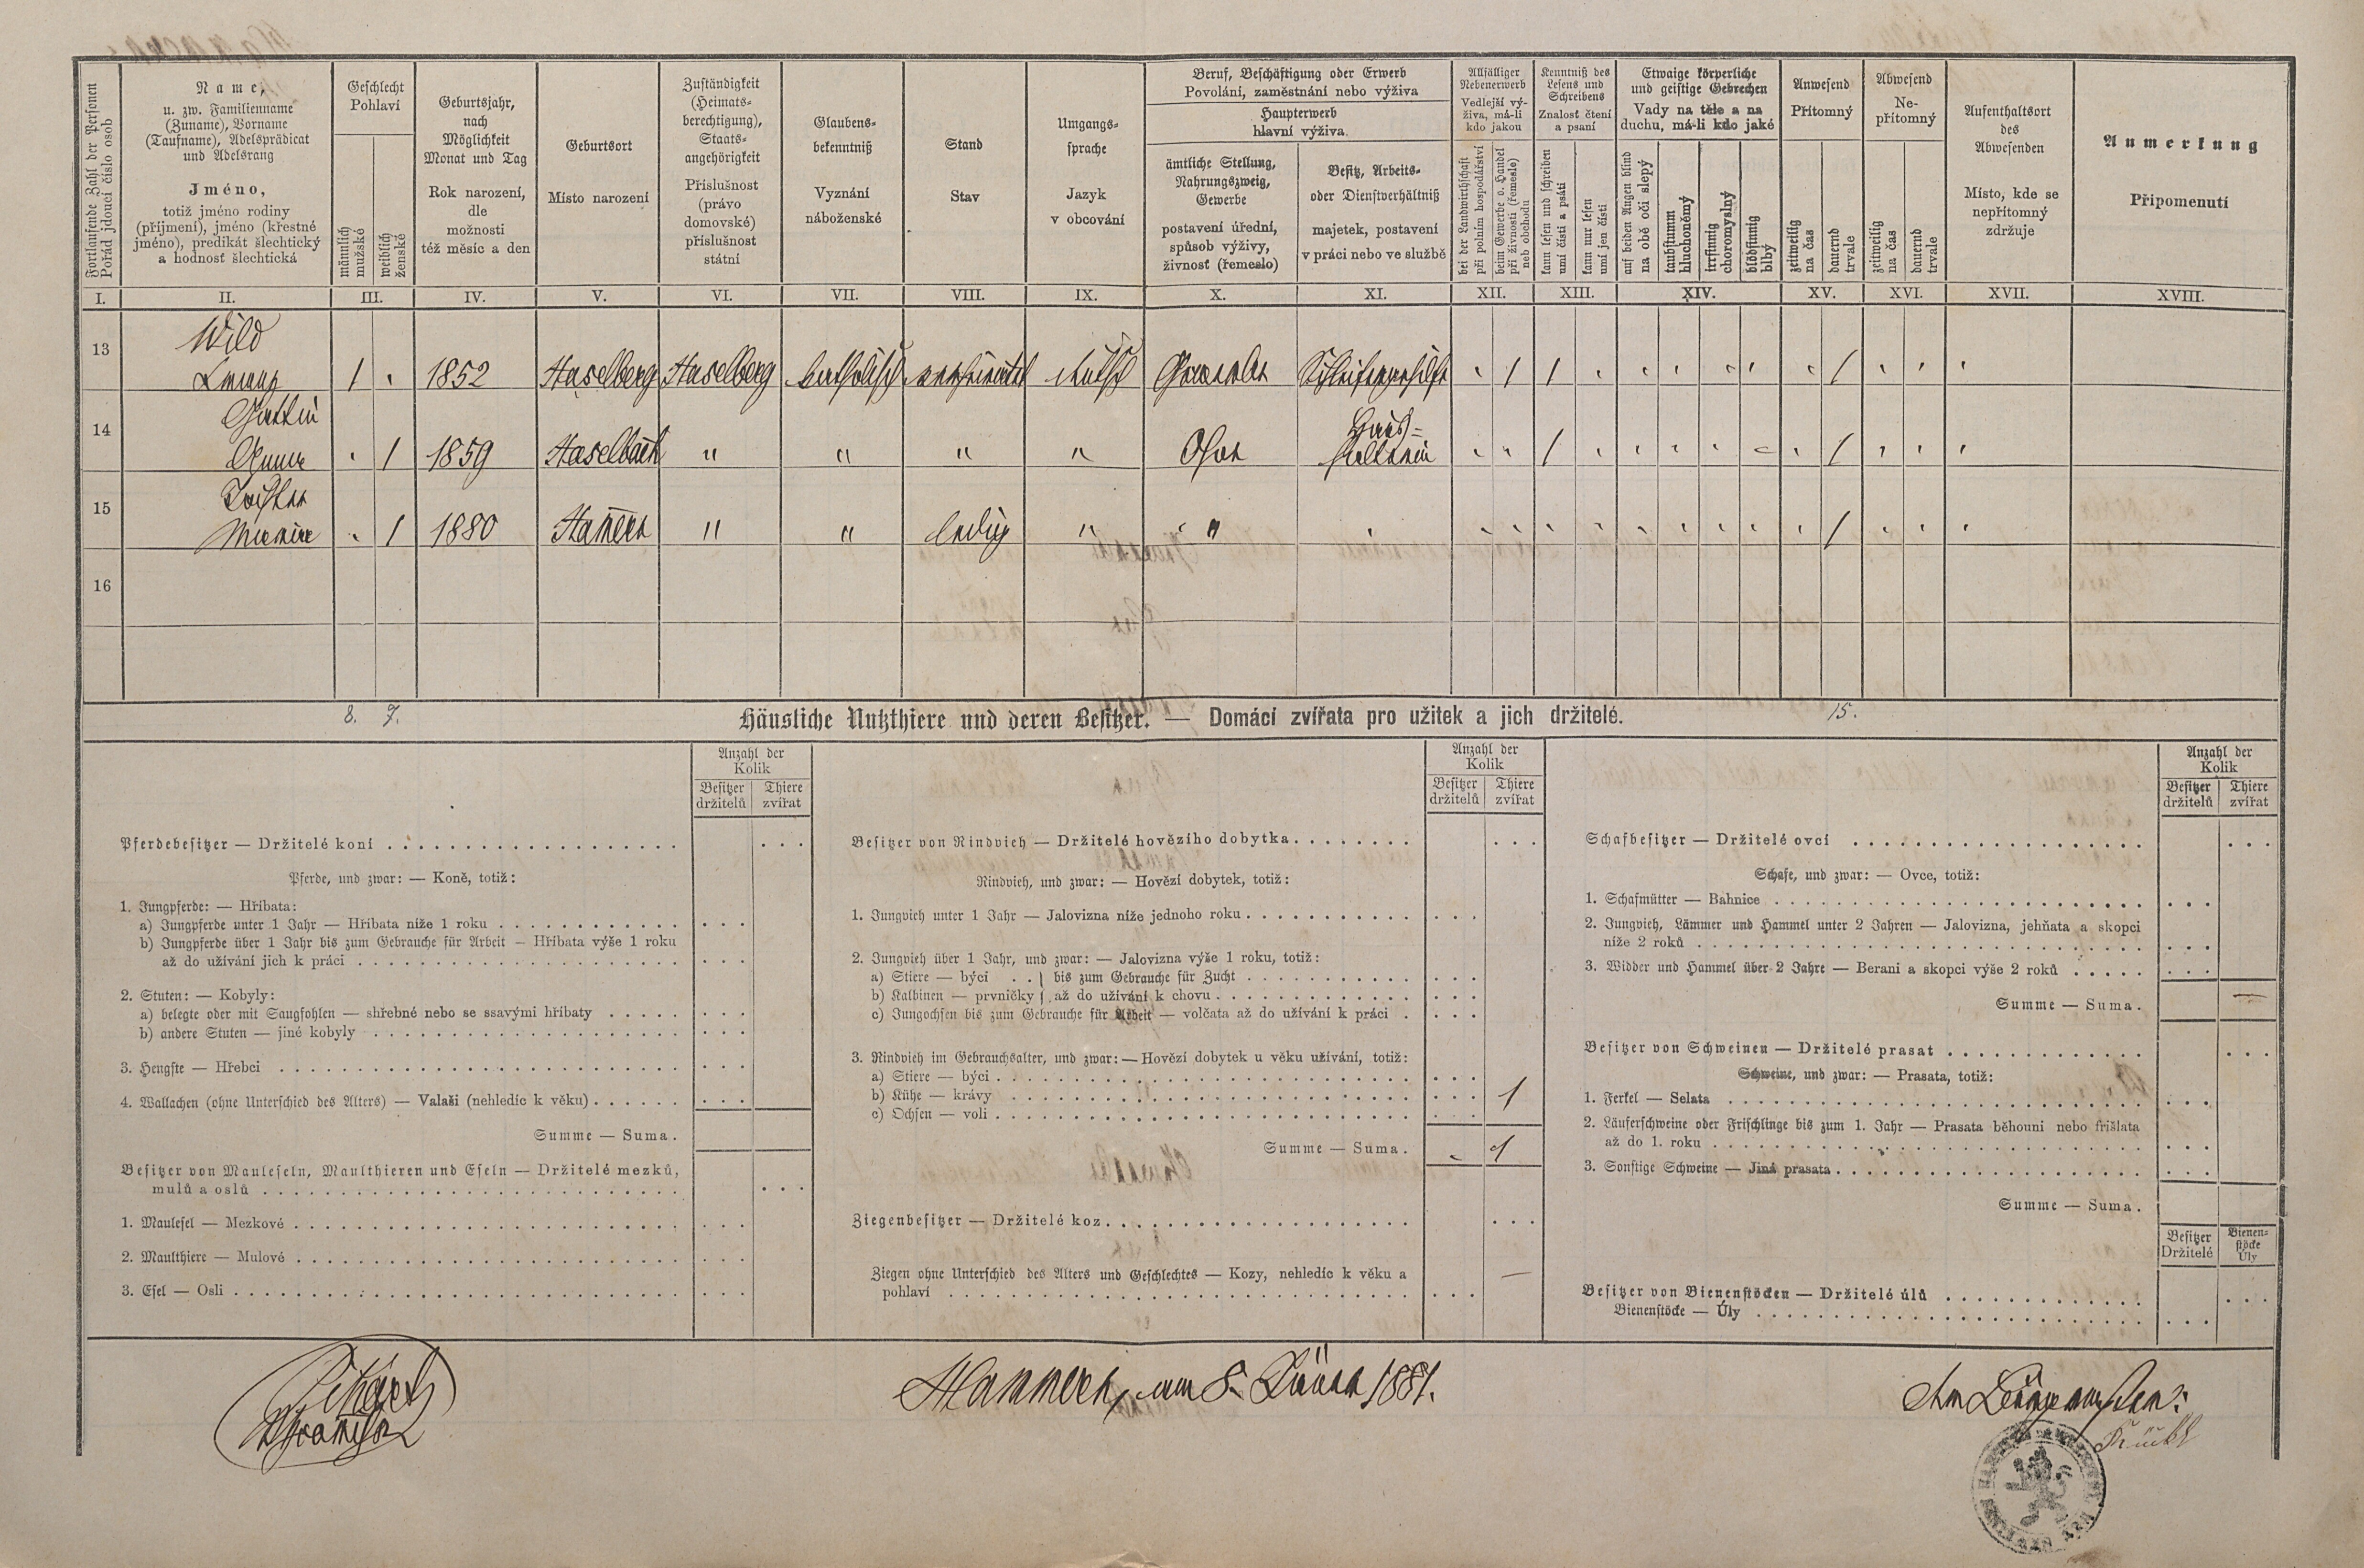 Fortlaufende Zahl der Personen
Pořád jdoucí číslo osob
Name,
u. zw. Familienname
(Zuname), Vorname
(Taufname), Adelsprädicat
und Adelsrang
Jméno,
totiž jméno rodiny
(příjmení), jméno (křestné
jméno), predikát šlechtický
a hodnosť šlechtická
Geschlecht
Pohlaví
männlich
mužské
weiblich
ženské
Geburtsjahr,
nach
Möglichkeit
Monat und Tag
Rok narození,
dle
možnosti
též měsíc a den
Geburtsort
Místo narození
Zuständigkeit
(Heimats-
berechtigung),
Staats-
angehörigkeit
Příslušnost
(právo
domovské)
příslušnost
státní
Glaubens-
bekenntniß
Vyznání
náboženské
Stand
Stav
Umgangs-
sprache
Jazyk
v obcování
Beruf, Beschäftigung oder Erwerb
Povolání, zaměstnání nebo výživa
Haupterwerb
hlavní výživa
ämtliche Stellung,
Nahrungszweig,
Gewerbe
postavení úřední,
spůsob výživy,
živnosť (řemeslo)
Besitz, Arbeits-
oder Dienstverhältniß
majetek, postavení
v práci nebo ve službě
Allfälliger
Nebenerwerb
Vedlejší vý-
živa, má-li
kdo jakou
bei der Landwirthschaft
při polním hospodářství
beim Gewerbe o. Handel
při živnosti (řemesle)
neb obchodu
Kenntniß des
Lesens und
Schreibens
Znalosť čtení
a psaní
kann lesen und schreiben
umí čísti a psáti
kann nur lesen
umí jen čísti
Etwaige körperliche
und geistige Gebrechen
Vady na těle a na
duchu, má-li kdo jaké
auf beiden Augen blind
na obě oči slepý
taubstumm
hluchoněmý
irrsinnig
choromyslný
blödsinnig
blbý
Anwesend
Přítomný
zeitweilig
na čas
dauernd
trvale
Abwesend
Ne-
přítomný
zeitweilig
na čas
dauernd
trvale
Aufenthaltsort
des
Abwesenden
Místo, kde se
nepřítomný
zdržuje
Anmerkung
Připomenutí
I. II. III. IV. V. VI. VII. VIII. IX. X. XI. XII. XIII. XIV. XV. XVI. XVII. XVIII.
13 Wild
1 " 1852 Haselberg Haselberg katholisch verheiratet deutsch 1 1 1
14 Gattin
Anna " 1 1859 Haselbach " " " " Haus- 1 1
15 Tochter
" 1 1880 Hamern " " ledig " " 1
16
8. 7. 15.
Häusliche Nutzthiere und deren Besitzer. — Domácí zvířata pro užitek a jich držitelé.
Anzahl der
Kolik
Besitzer
držitelů
Thiere
zvířat
Pferdebesitzer — Držitelé koní
Pferde, und zwar: — Koně, totiž:
1. Jungpferde: — Hříbata:
a) Jungpferde unter 1 Jahr — Hříbata níže 1 roku
b) Jungpferde über 1 Jahr bis zum Gebrauche für Arbeit — Hříbata výše 1 roku
až do užívání jich k práci
2. Stuten: — Kobyly:
a) belegte oder mit Saugfohlen — shřebné nebo se ssavými hříbaty
b) andere Stuten — jiné kobyly
3. Hengste — Hřebci
4. Wallachen (ohne Unterschied des Alters) — Valaši (nehledíc k věku)
Summe — Suma.
Besitzer von Mauleseln, Maulthieren und Eseln — Držitelé mezků,
mulů a oslů
1. Maulesel — Mezkové
2. Maulthiere — Mulové
3. Esel — Osli
Anzahl der
Kolik
Besitzer
držitelů
Thiere
zvířat
Besitzer von Rindvieh — Držitelé hovězího dobytka
Rindvieh, und zwar: — Hovězí dobytek, totiž:
1. Jungvieh unter 1 Jahr — Jalovizna níže jednoho roku
2. Jungvieh über 1 Jahr, und zwar: — Jalovizna výše 1 roku, totiž:
a) Stiere — býci . . } bis zum Gebrauche für Zucht
b) Kalbinen — prvničky } až do užívání k chovu
c) Jungochsen bis zum Gebrauche für Arbeit — volčata až do užívání k práci
3. Rindvieh im Gebrauchsalter, und zwar: — Hovězí dobytek u věku užívání, totiž:
a) Stiere — býci
b) Kühe — krávy 1
c) Ochsen — voli
Summe — Suma. 1
Ziegenbesitzer — Držitelé koz
Ziegen ohne Unterschied des Alters und Geschlechtes — Kozy, nehledíc k věku a
pohlaví —
Anzahl der
Kolik
Besitzer
držitelů
Thiere
zvířat
Schafbesitzer — Držitelé ovcí
Schafe, und zwar: — Ovce, totiž:
1. Schafmütter — Bahnice
2. Jungvieh, Lämmer und Hammel unter 2 Jahren — Jalovizna, jehňata a skopci
níže 2 roků
3. Widder und Hammel über 2 Jahre — Berani a skopci výše 2 roků
Summe — Suma. —
Besitzer von Schweinen — Držitelé prasat
Schweine, und zwar: — Prasata, totiž:
1. Ferkel — Selata
2. Läuferschweine oder Frischlinge bis zum 1. Jahr — Prasata běhouni nebo frišlata
až do 1. roku
3. Sonstige Schweine — Jiná prasata
Summe — Suma.
Besitzer
Držitelé
Bienen-
stöcke
Úly
Besitzer von Bienenstöcken — Držitelé úlů
Bienenstöcke — Úly
Hammern, am 8. Jänner 1881.